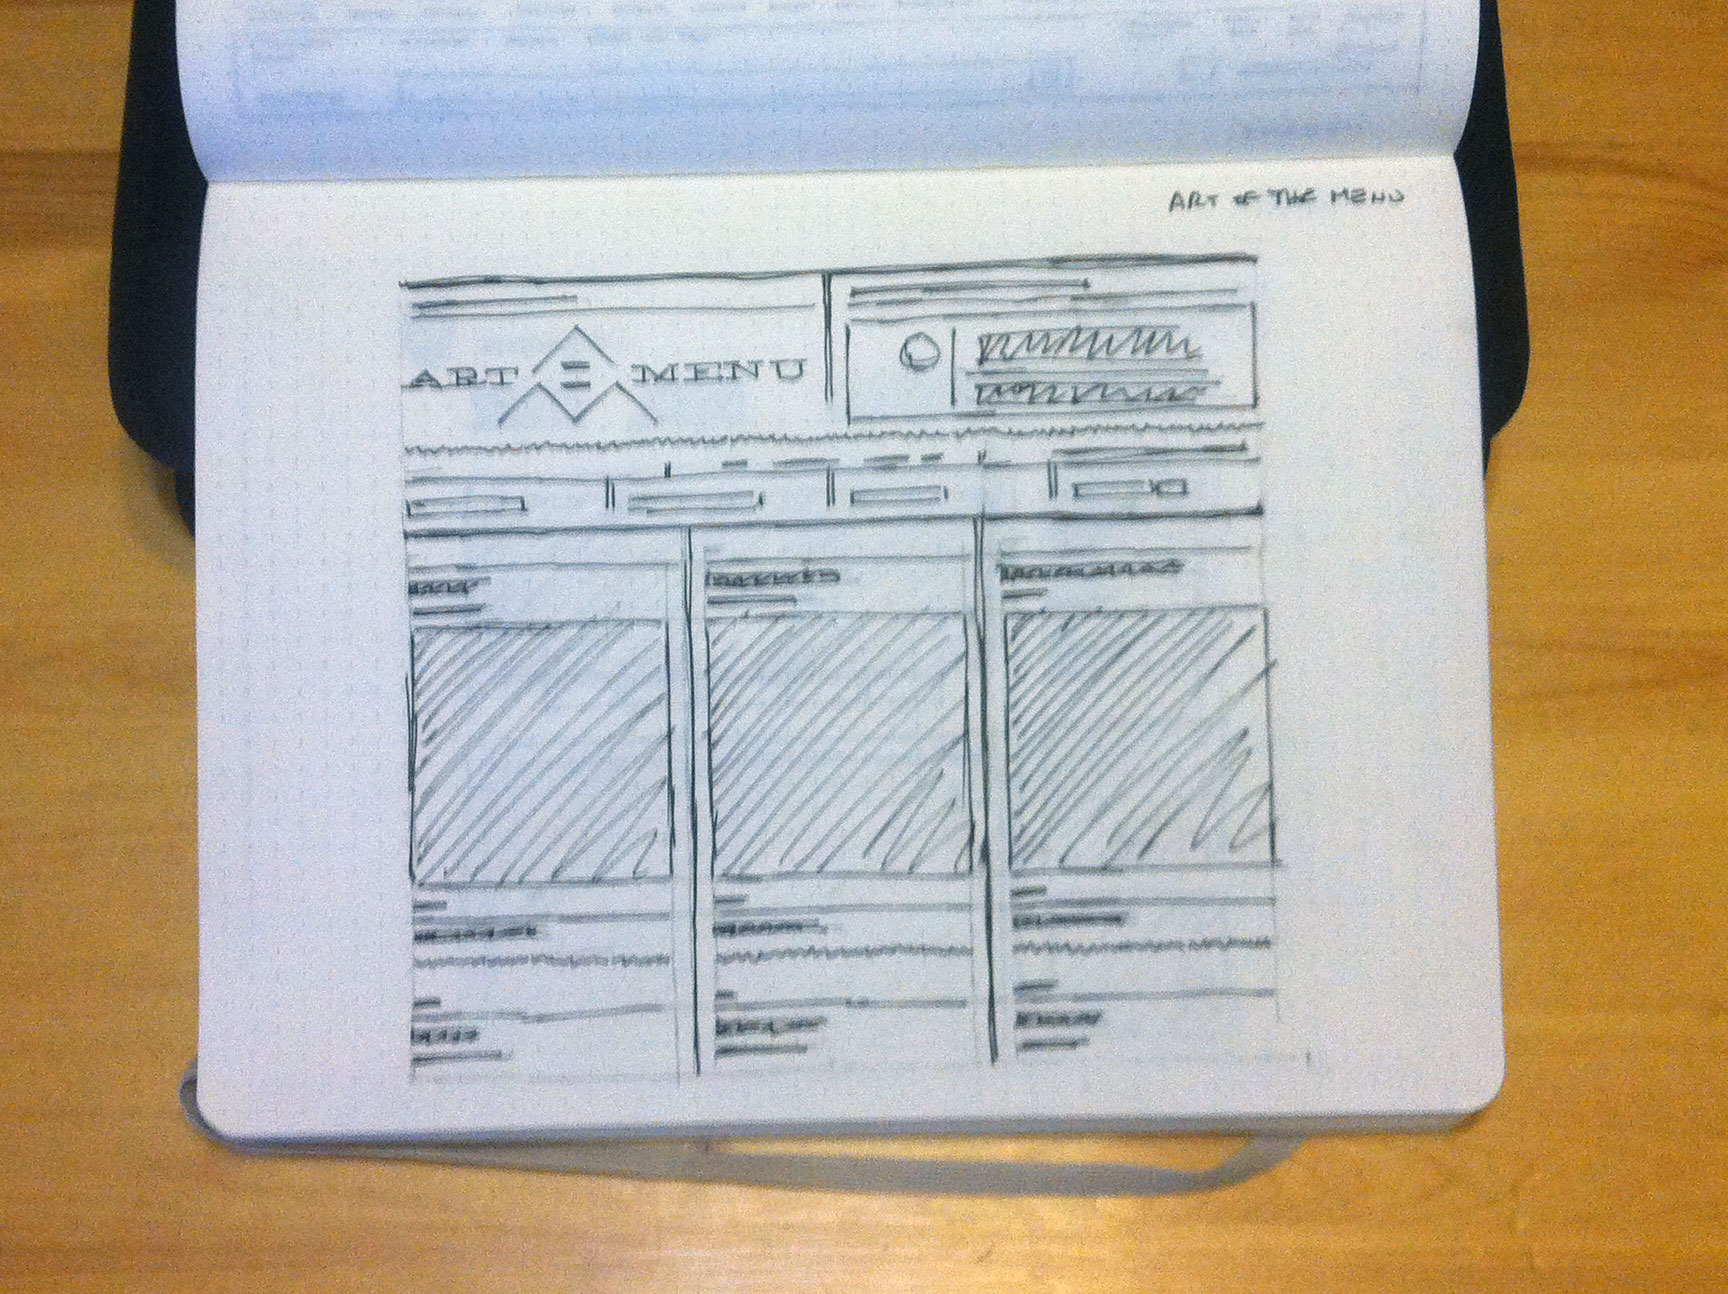 ART OF THE MENU
ART = MENU